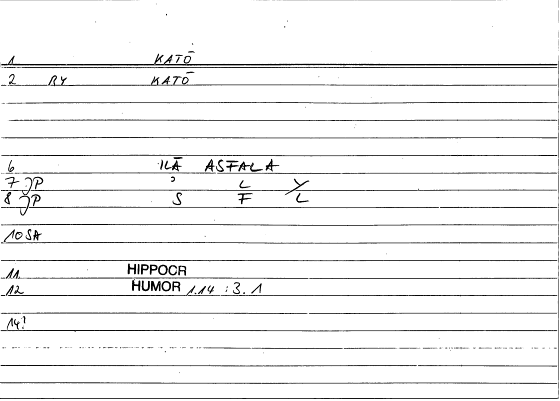 1 KATŌ
2 RY KATŌ
6 ILĀ ASFALA
7 JP ʾ L Y
8 JP S F L
10 SA
11 HIPPOCR
12 HUMOR 1.14 : 3.1
14!